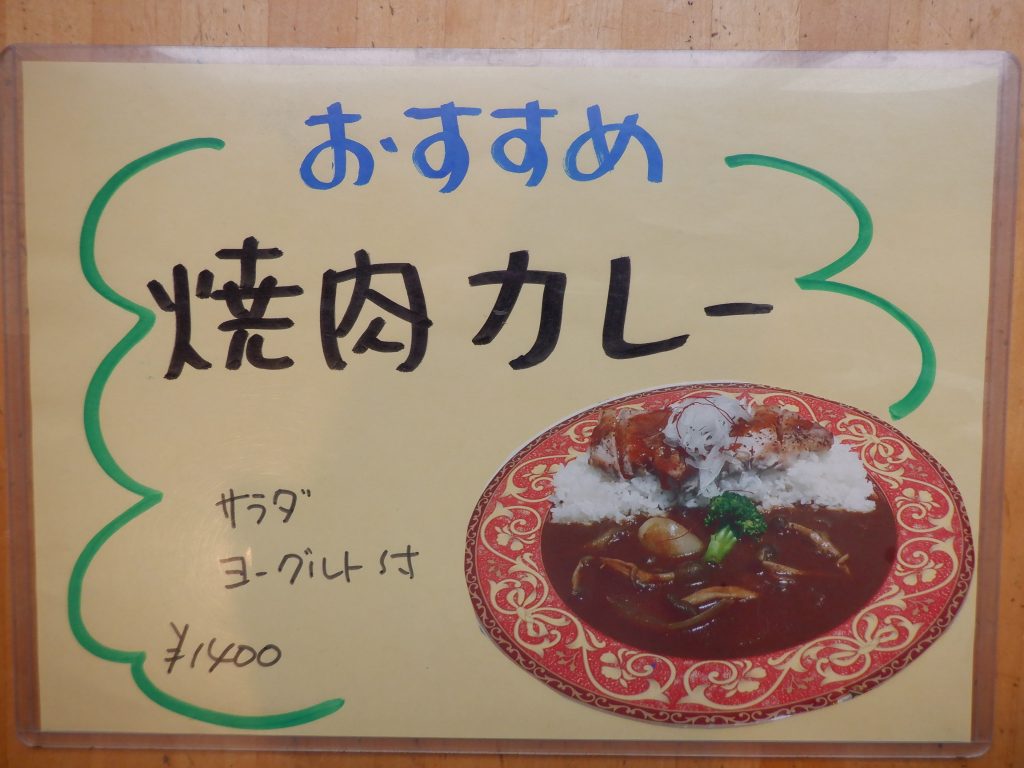 おすすめ
焼肉カレー
サラダ
ヨーグルト付
¥1400